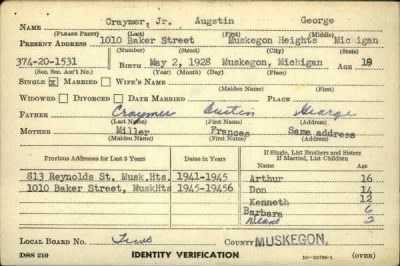 Craymer, Jr. Augstin George
NAME
(PLEASE PRINT) (Last) (First) (Middle)
PRESENT ADDRESS 1010 Baker Street Muskegon Heights Michigan
(Number) (Street) (City) (State)
374-20-1531 BIRTH May 2, 1928 Muskegon, Michigan AGE 18
(Soc. Sec. Ac't No.) (Year) (Month) (Day) (Place)
SINGLE x MARRIED WIFE'S NAME
(Maiden Name) (First Name)
WIDOWED DIVORCED DATE MARRIED PLACE
FATHER Craymer Austin George
(Last Name) (First Name) (Address)
MOTHER Miller Frances Same address
(Maiden Name) (First Name) (Address)
Previous Addresses for Last 5 Years Dates in Years If Single, List Brothers and Sisters
If Married, List Children Age
813 Reynolds St, Musk.Hts. 1941-1945 Arthur 16
1010 Baker Street, MuskHts 1945-19456 Don 14
Kenneth 12
Barbara 6
2
LOCAL BOARD NO. Two COUNTY MUSKEGON.
DSS 210 IDENTITY VERIFICATION (OVER)